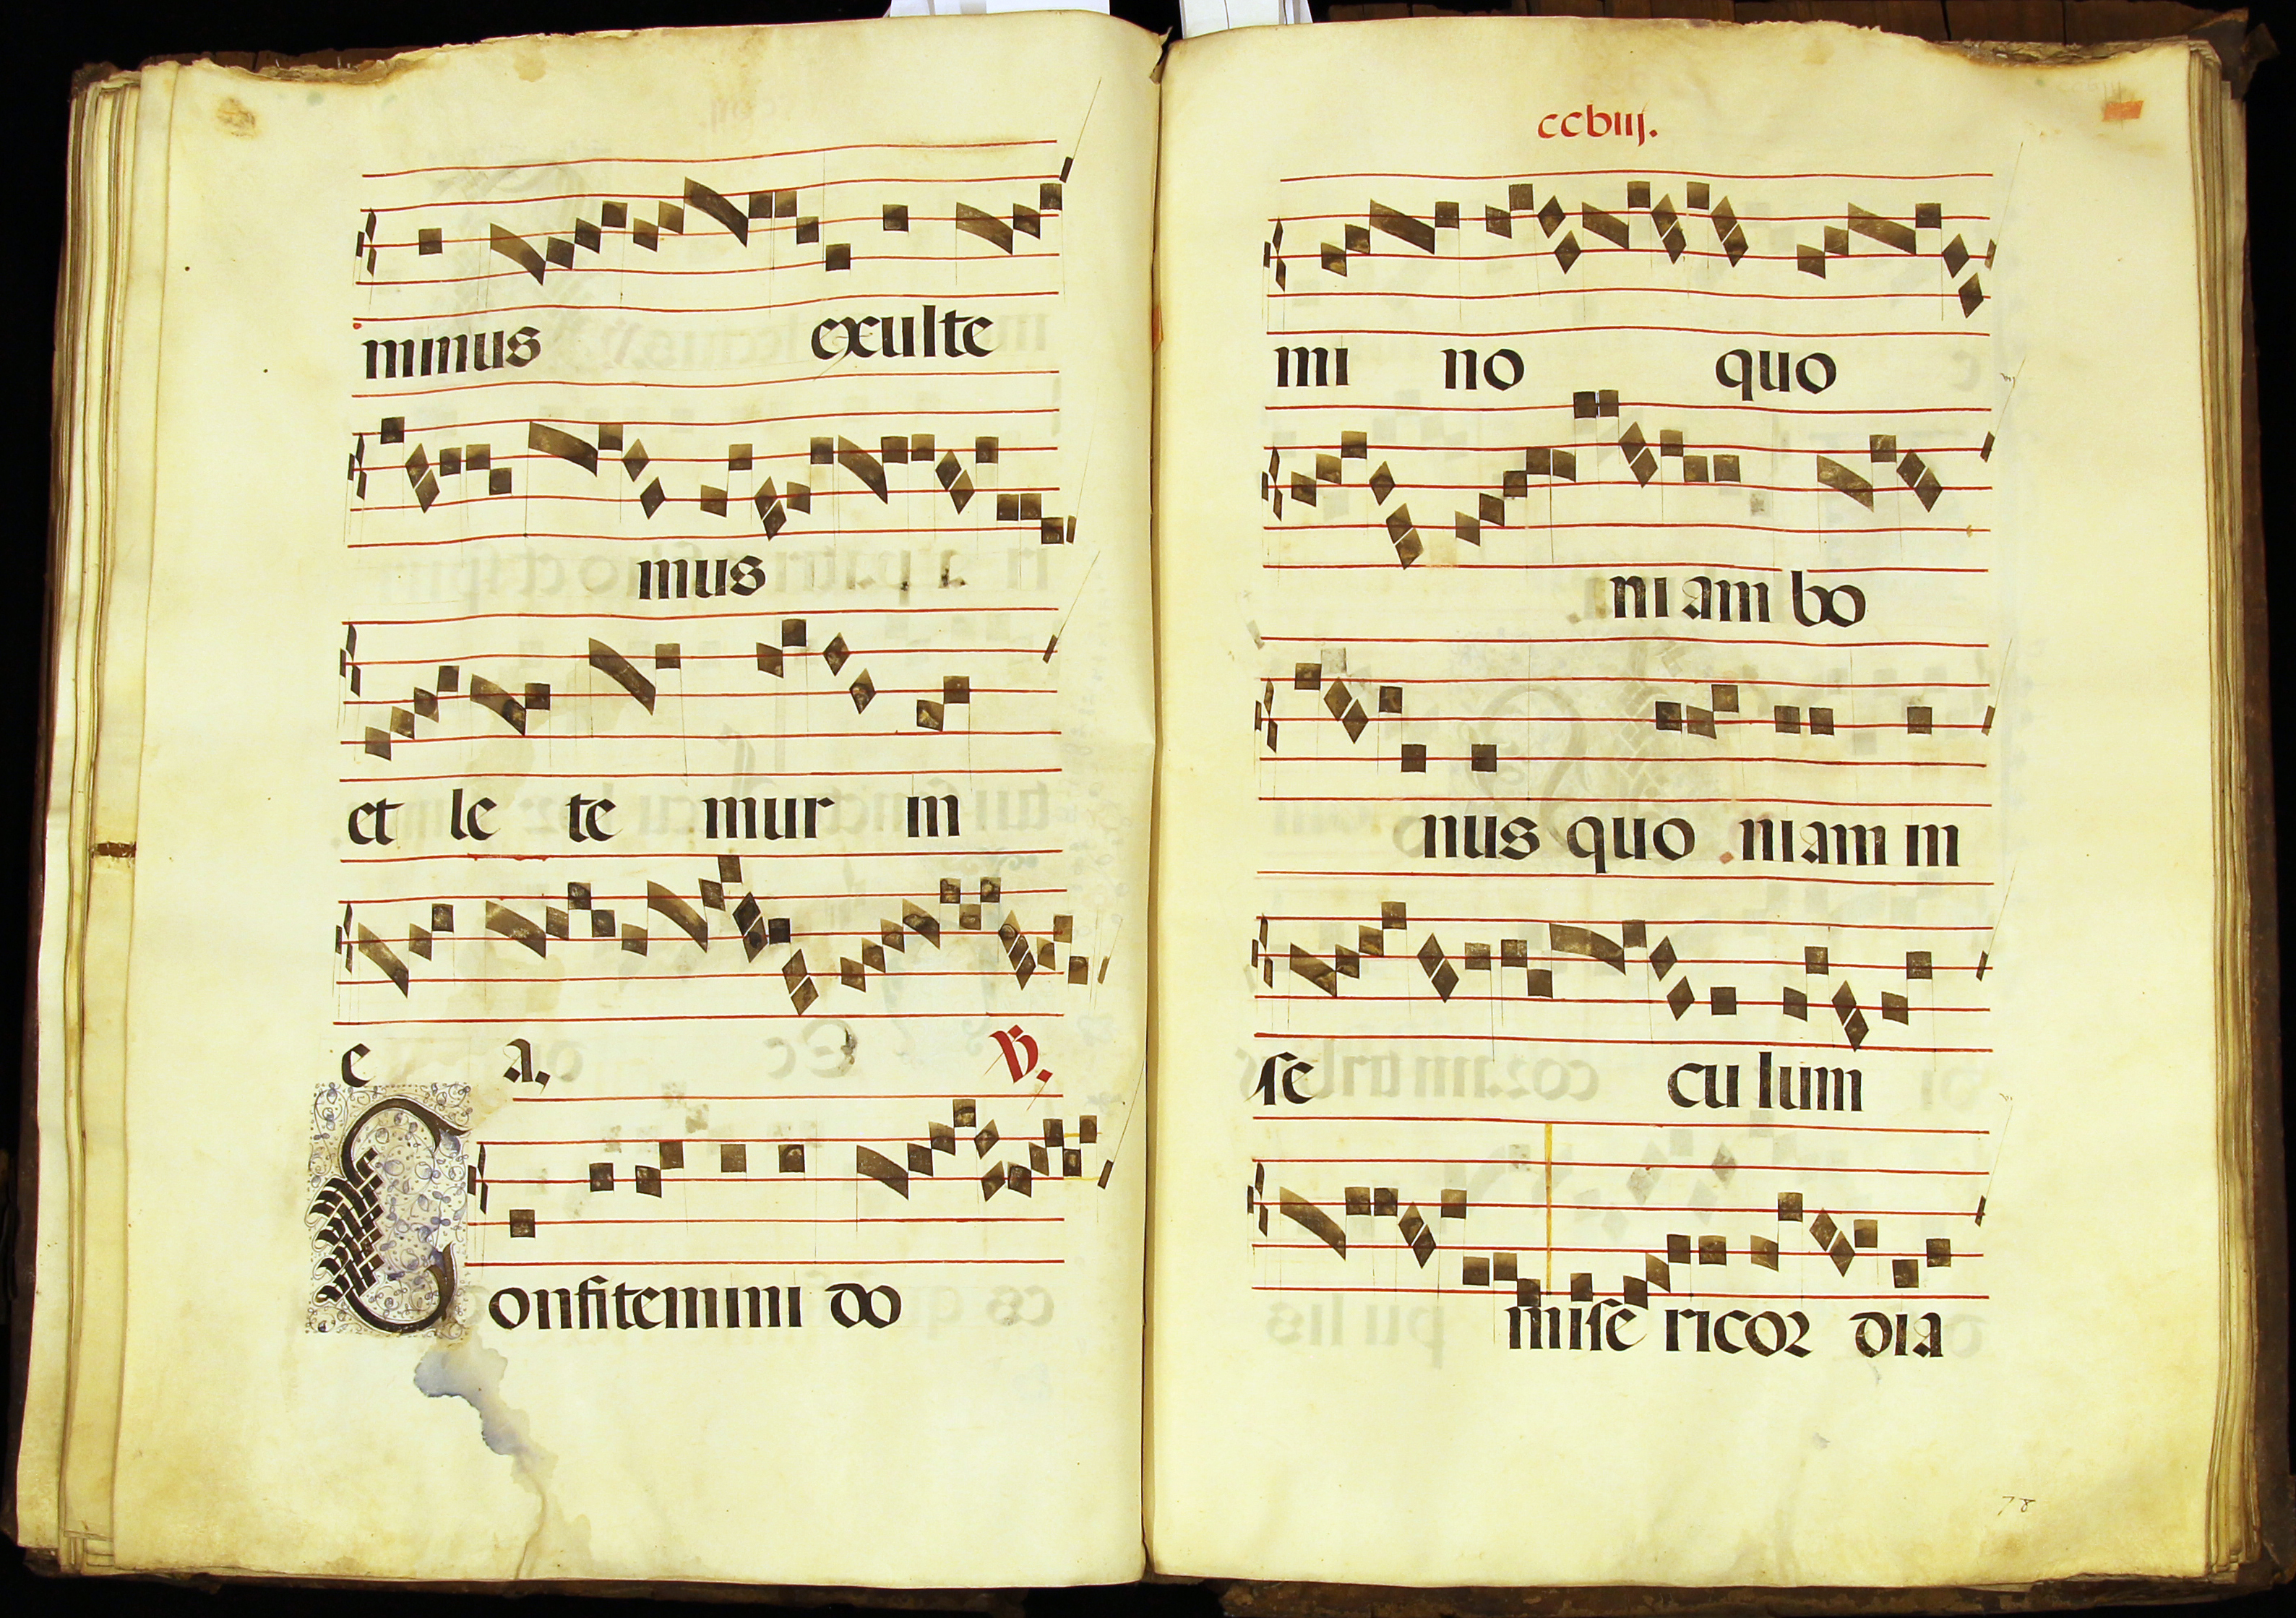 minus exulte
mus
et le te mur in
e a. V.
Confitemini do
ccbiij.
mi no quo
ni am bo
nus quo niam in
se cu lum
mise ricor dia
78